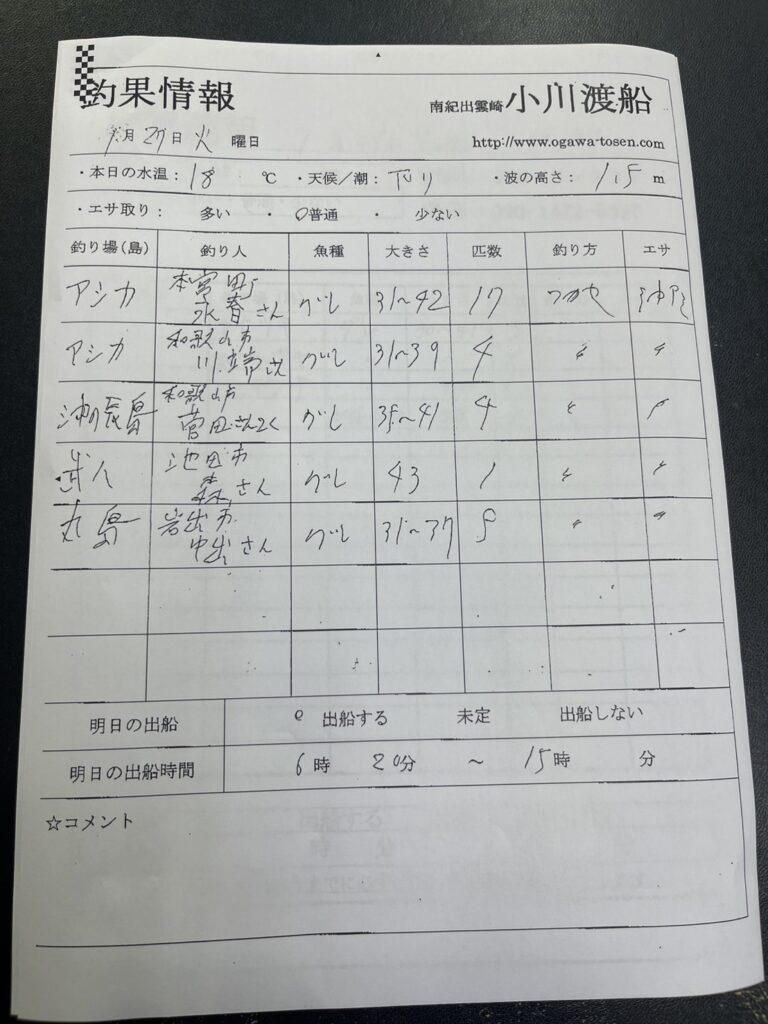 釣果情報
南紀出雲崎 小川渡船
1月27日 火 曜日
http://www.ogawa-tosen.com
・本日の水温：18 ℃ ・天候／潮：下り ・波の高さ：1.5 m
・エサ取り： 多い ・ 普通 ・ 少ない
釣り場(島) 釣り人 魚種 大きさ 匹数 釣り方 エサ
アシカ 本宮町 永春さん グレ 31〜42 17 フカセ 沖アミ
アシカ 和歌山市 川端さん グレ 31〜39 4 〃 〃
沖ノ長島 和歌山市 菅田さん グレ 35〜41 4 〃 〃
池田市 森さん グレ 43 1 〃 〃
丸島 岩出市 中出さん グレ 31〜37 〃 〃
明日の出船 出船する 未定 出船しない
明日の出船時間 6時 20分 〜 15時 分
☆コメント